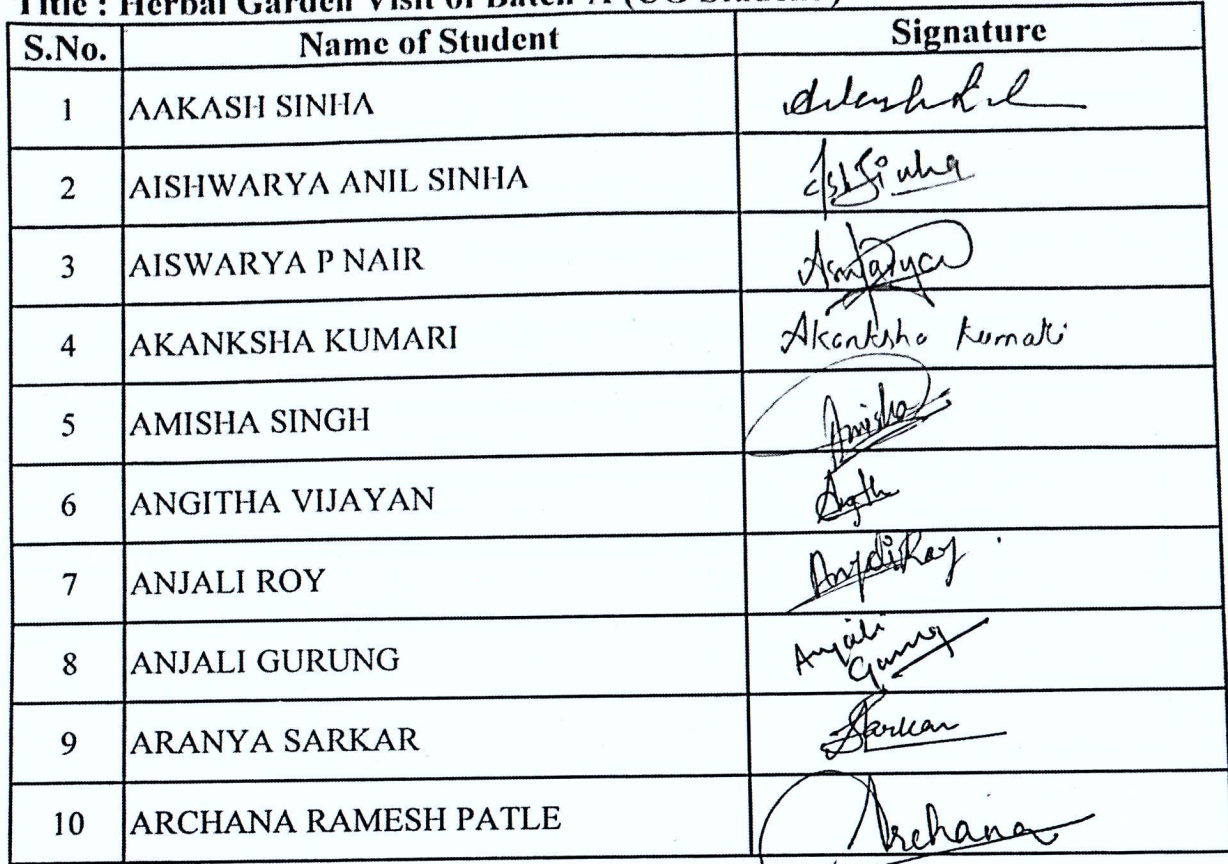 Title : Herbal Garden Visit of Batch-A (UG Student)
S.No. Name of Student Signature
1 AAKASH SINHA
2 AISHWARYA ANIL SINHA AshSinha
3 AISWARYA P NAIR Aiswarya
4 AKANKSHA KUMARI Akanksha Kumari
5 AMISHA SINGH Amisha
6 ANGITHA VIJAYAN Angth
7 ANJALI ROY Anjali Roy
8 ANJALI GURUNG Anjali Gurung
9 ARANYA SARKAR Sarkar
10 ARCHANA RAMESH PATLE Archana